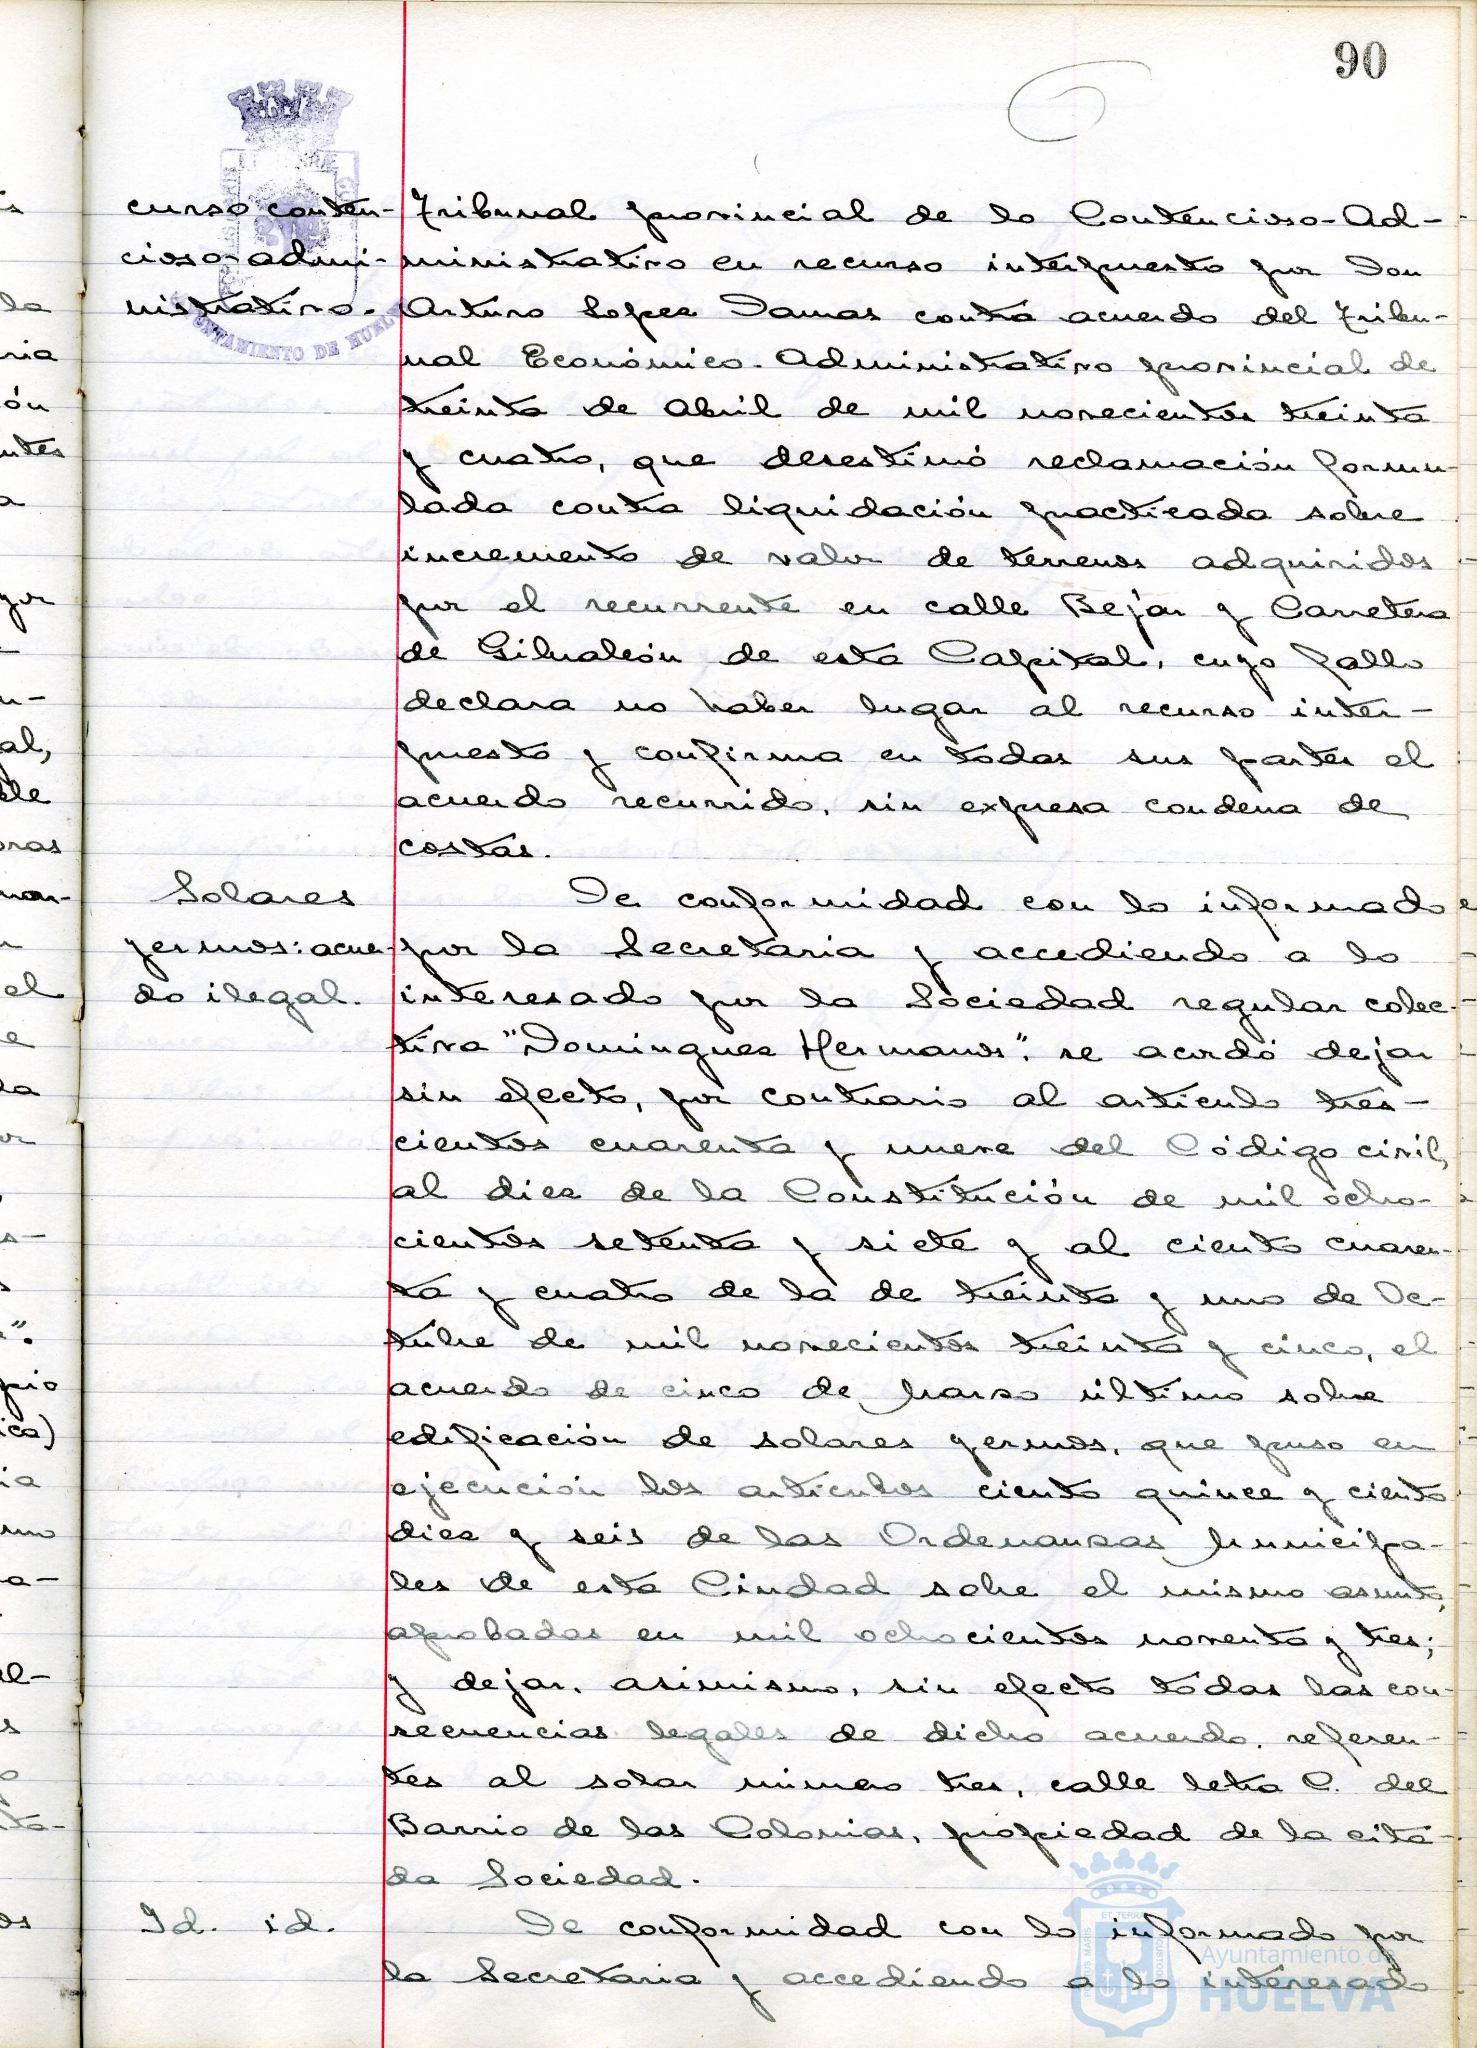 90
curso conten-
cioso-admi-
nistrativo.
Tribunal provincial de lo Contencioso-Ad-
ministrativo en recurso interpuesto por Don
Arturo Lopez Damas contra acuerdo del Tribu-
nal Económico-Administrativo provincial de
treinta de Abril de mil novecientos treinta
y cuatro, que desestimó reclamación formu-
lada contra liquidación practicada sobre
incremento de valor de terrenos adquiridos
por el recurrente en calle Bejar y Carretera
de Gibraleón de esta Capital, cuyo fallo
declara no haber lugar al recurso inter-
puesto y confirma en todas sus partes el
acuerdo recurrido, sin expresa condena de
costas.
Solares
yermos: acuer-
do ilegal.
De conformidad con lo informado
por la Secretaria y accediendo a lo
interesado por la Sociedad regular colec-
tiva "Dominguez Hermanos", se acordó dejar
sin efecto, por contrario al artículo tres-
cientos cuarenta y nueve del Código civil,
al diez de la Constitución de mil ocho-
cientos setenta y siete y al ciento cuaren-
ta y cuatro de la de treinta y uno de Oc-
tubre de mil novecientos treinta y cinco, el
acuerdo de cinco de Marzo último sobre
edificación de solares yermos, que puso en
ejecución los artículos ciento quince y ciento
diez y seis de las Ordenanzas Municipa-
les de esta Ciudad sobre el mismo asunto,
aprobadas en mil ochocientos noventa y tres;
y dejar, asimismo, sin efecto todas las con-
secuencias legales de dicho acuerdo, referen-
tes al solar número tres, calle letra C. del
Barrio de las Colonias, propiedad de la cita-
da Sociedad.
Id. id.
De conformidad con lo informado por
la Secretaria y accediendo a lo interesado
Ayuntamiento de
HUELVA